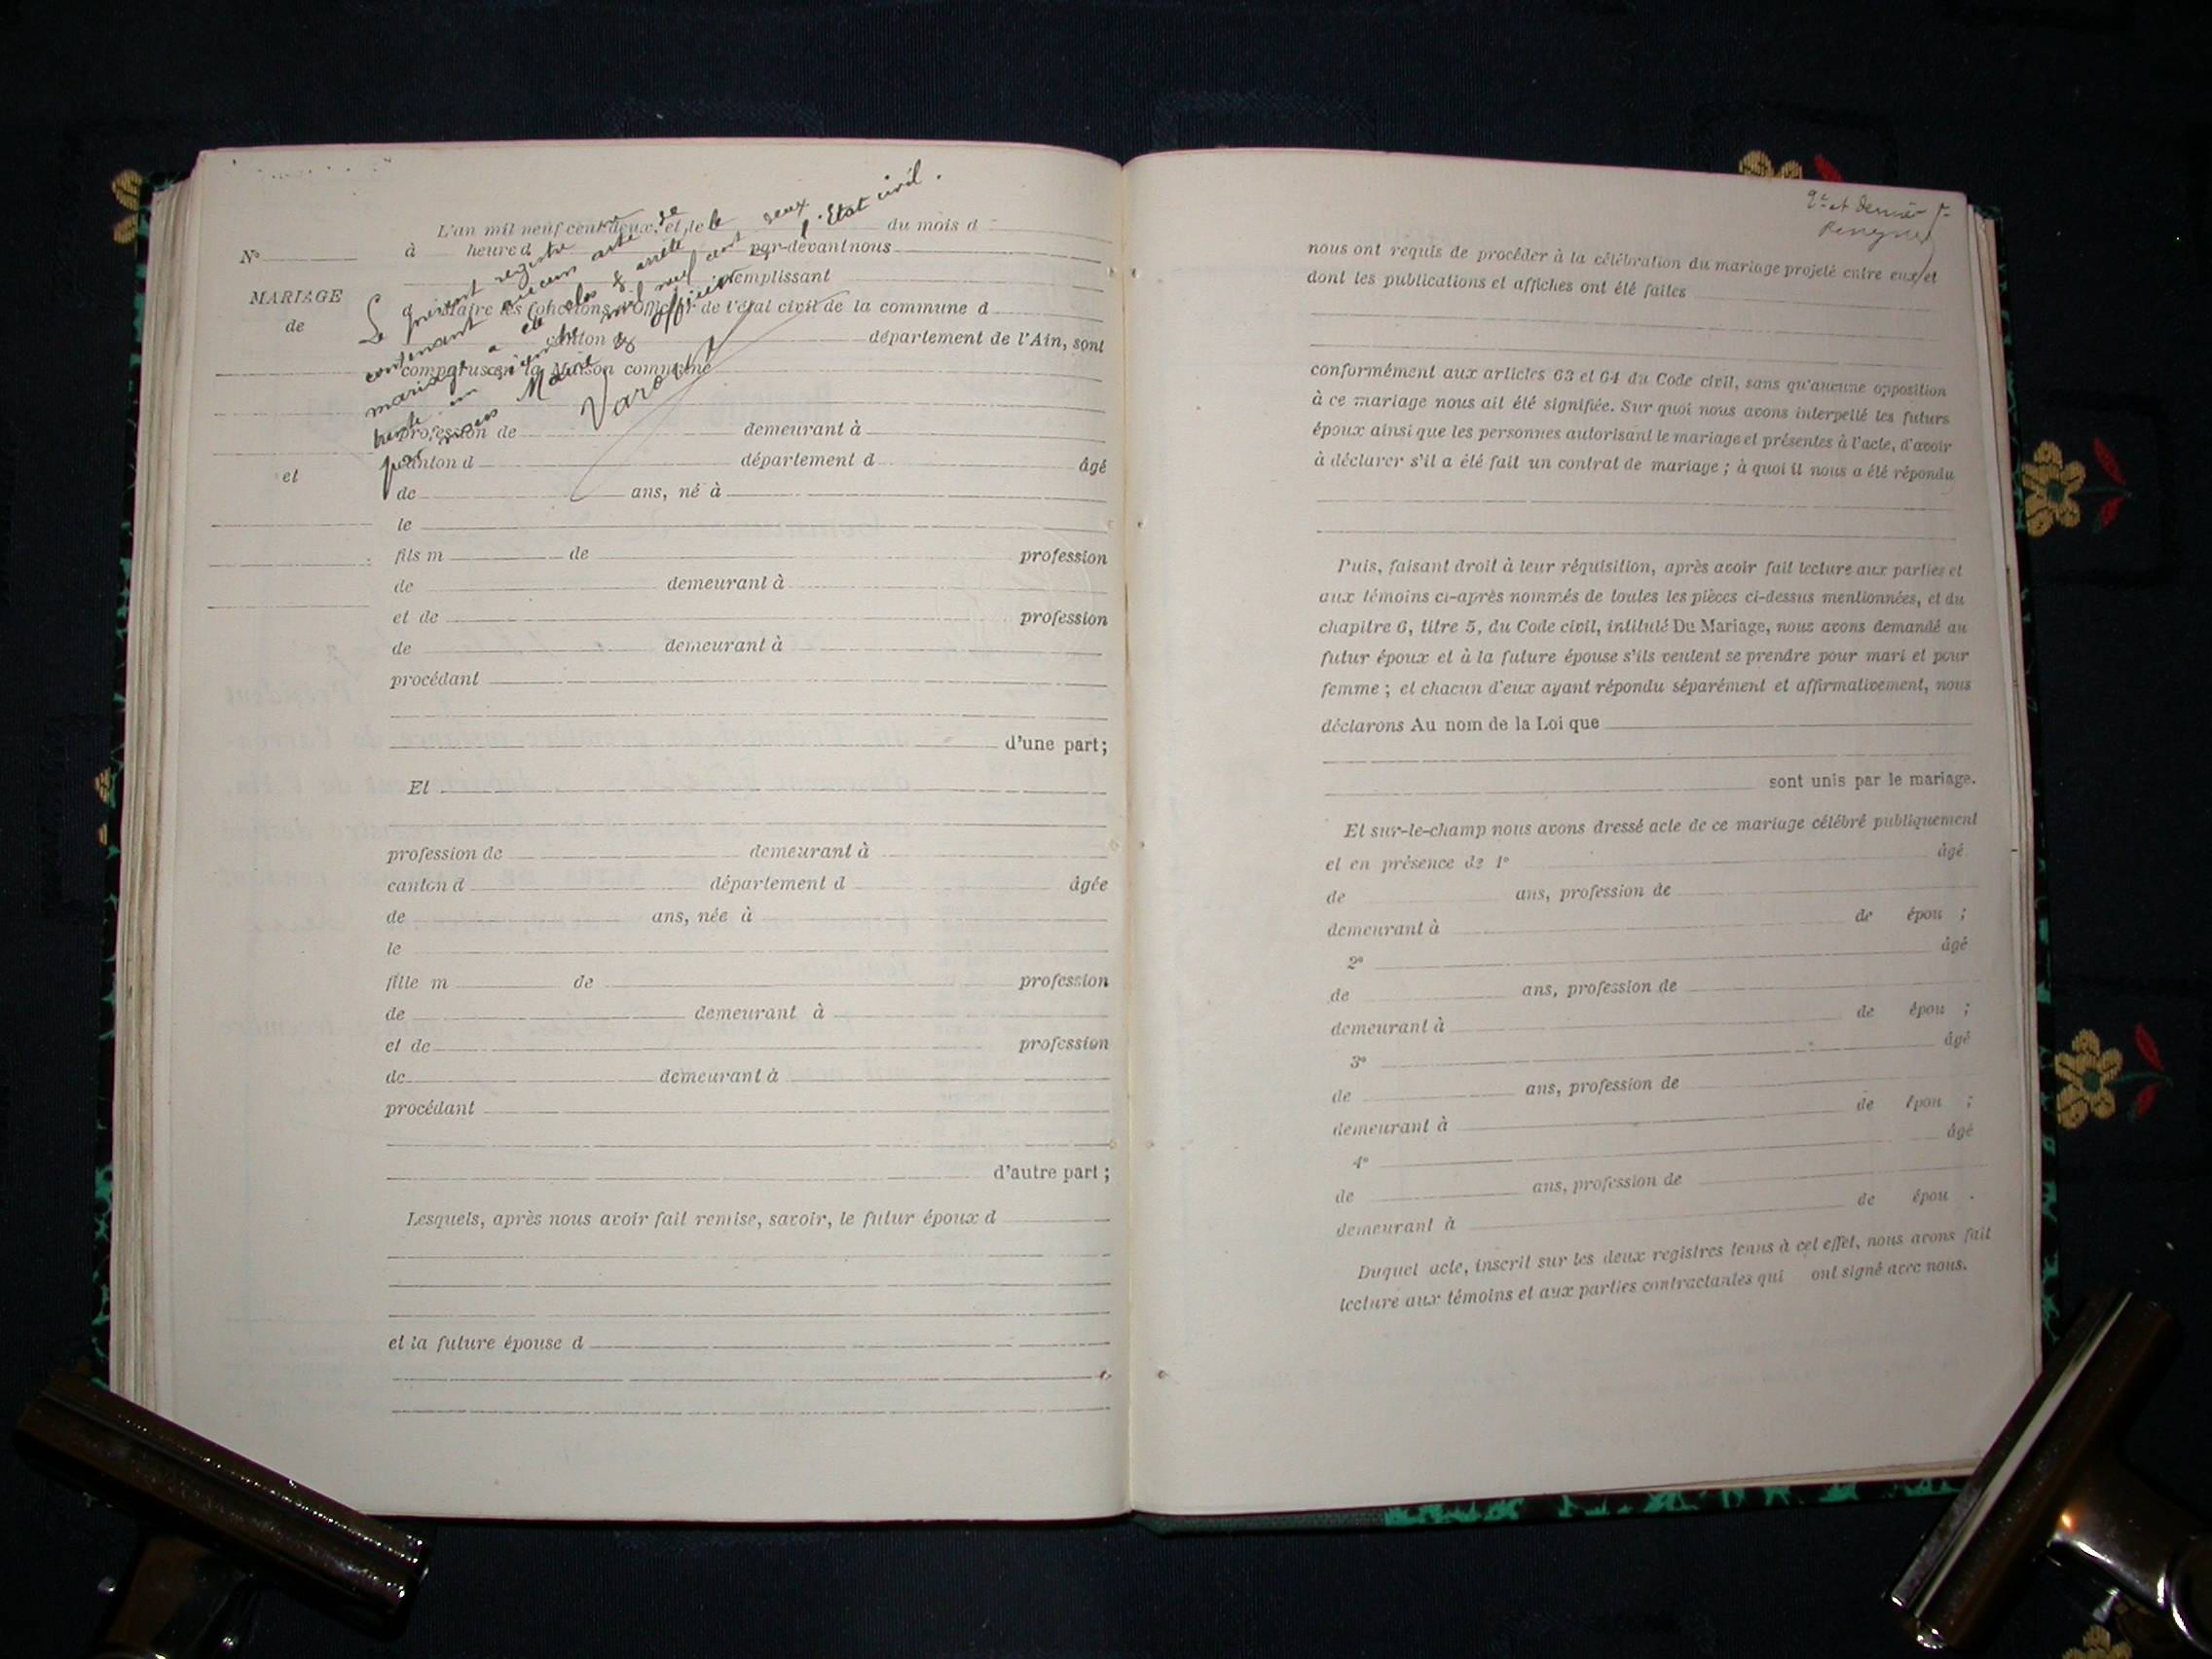 L'an mil neuf cent deux, et le du mois d
N° à heure d par-devant nous
remplissant
MARIAGE
de
maire les fonctions d'Officier de l'état civil de la commune d
canton d département de l'Ain, sont
comparus en la Maison commune
Le présent registre ne
contenant aucun acte de
mariage a été clos & arrêté le
trente un décembre mil neuf cent deux
par nous Maire & officier de l'Etat civil.
profession de demeurant à
et
canton d département d âgé
de ans, né à
le
fils m de profession
de demeurant à
et de profession
de demeurant à
procédant
d'une part;
Et
profession de demeurant à
canton d département d âgée
de ans, née à
le
fille m de profession
de demeurant à
et de profession
de demeurant à
procédant
d'autre part ;
Lesquels, après nous avoir fait remise, savoir, le futur époux d
et la future épouse d
2e et dernier
nous ont requis de procéder à la célébration du mariage projeté entre eux, et
dont les publications et affiches ont été faites
conformément aux articles 63 et 64 du Code civil, sans qu'aucune opposition
à ce mariage nous ait été signifiée. Sur quoi nous avons interpellé les futurs
époux ainsi que les personnes autorisant le mariage et présentes à l'acte, d'avoir
à déclarer s'il a été fait un contrat de mariage ; à quoi il nous a été répondu
Puis, faisant droit à leur réquisition, après avoir fait lecture aux parties et
aux témoins ci-après nommés de toutes les pièces ci-dessus mentionnées, et du
chapitre 6, titre 5, du Code civil, intitulé Du Mariage, nous avons demandé au
futur époux et à la future épouse s'ils veulent se prendre pour mari et pour
femme ; et chacun d'eux ayant répondu séparément et affirmativement, nous
déclarons Au nom de la Loi que
sont unis par le mariage.
Et sur-le-champ nous avons dressé acte de ce mariage célébré publiquement
et en présence de 1° âgé
de ans, profession de
demeurant à de épou ;
2° âgé
de ans, profession de
demeurant à de épou ;
3° âgé
de ans, profession de
demeurant à de épou ;
4° âgé
de ans, profession de
demeurant à de épou .
Duquel acte, inscrit sur les deux registres tenus à cet effet, nous avons fait
lecture aux témoins et aux parties contractantes qui ont signé avec nous.